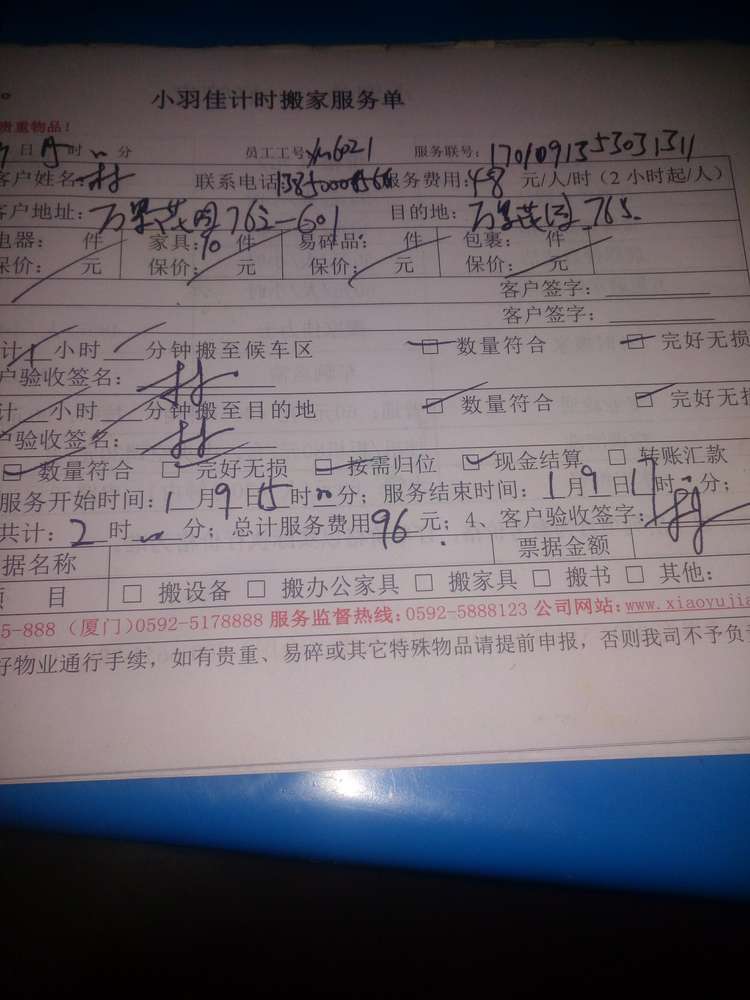 小羽佳计时搬家服务单
贵重物品！
9日15时~分 员工工号xm6021 服务联号：17010913553031311
客户姓名： 联系电话 服务费用：48元/人/时（2小时起/人）
客户地址： 762-601 目的地： 765
电器： 件 家具：10件 易碎品： 件 包裹： 件
保价： 元 保价： 元 保价： 元 保价： 元
客户签字：
客户签字：
计 小时 分钟搬至候车区 数量符合 完好无损
户验收签名：
计 小时 分钟搬至目的地 数量符合 完好无损
户验收签名：
数量符合 完好无损 按需归位 现金结算 转账汇款
服务开始时间：1月9日15时~分；服务结束时间：1月9日17时~分；
共计：2时~分；总计服务费用96元；4、客户验收签字：
据名称 票据金额
项 目 搬设备 搬办公家具 搬家具 搬书 其他：
5-888（厦门）0592-5178888 服务监督热线：0592-5888123 公司网站：www.xiaoyujia
好物业通行手续，如有贵重、易碎或其它特殊物品请提前申报，否则我司不予负